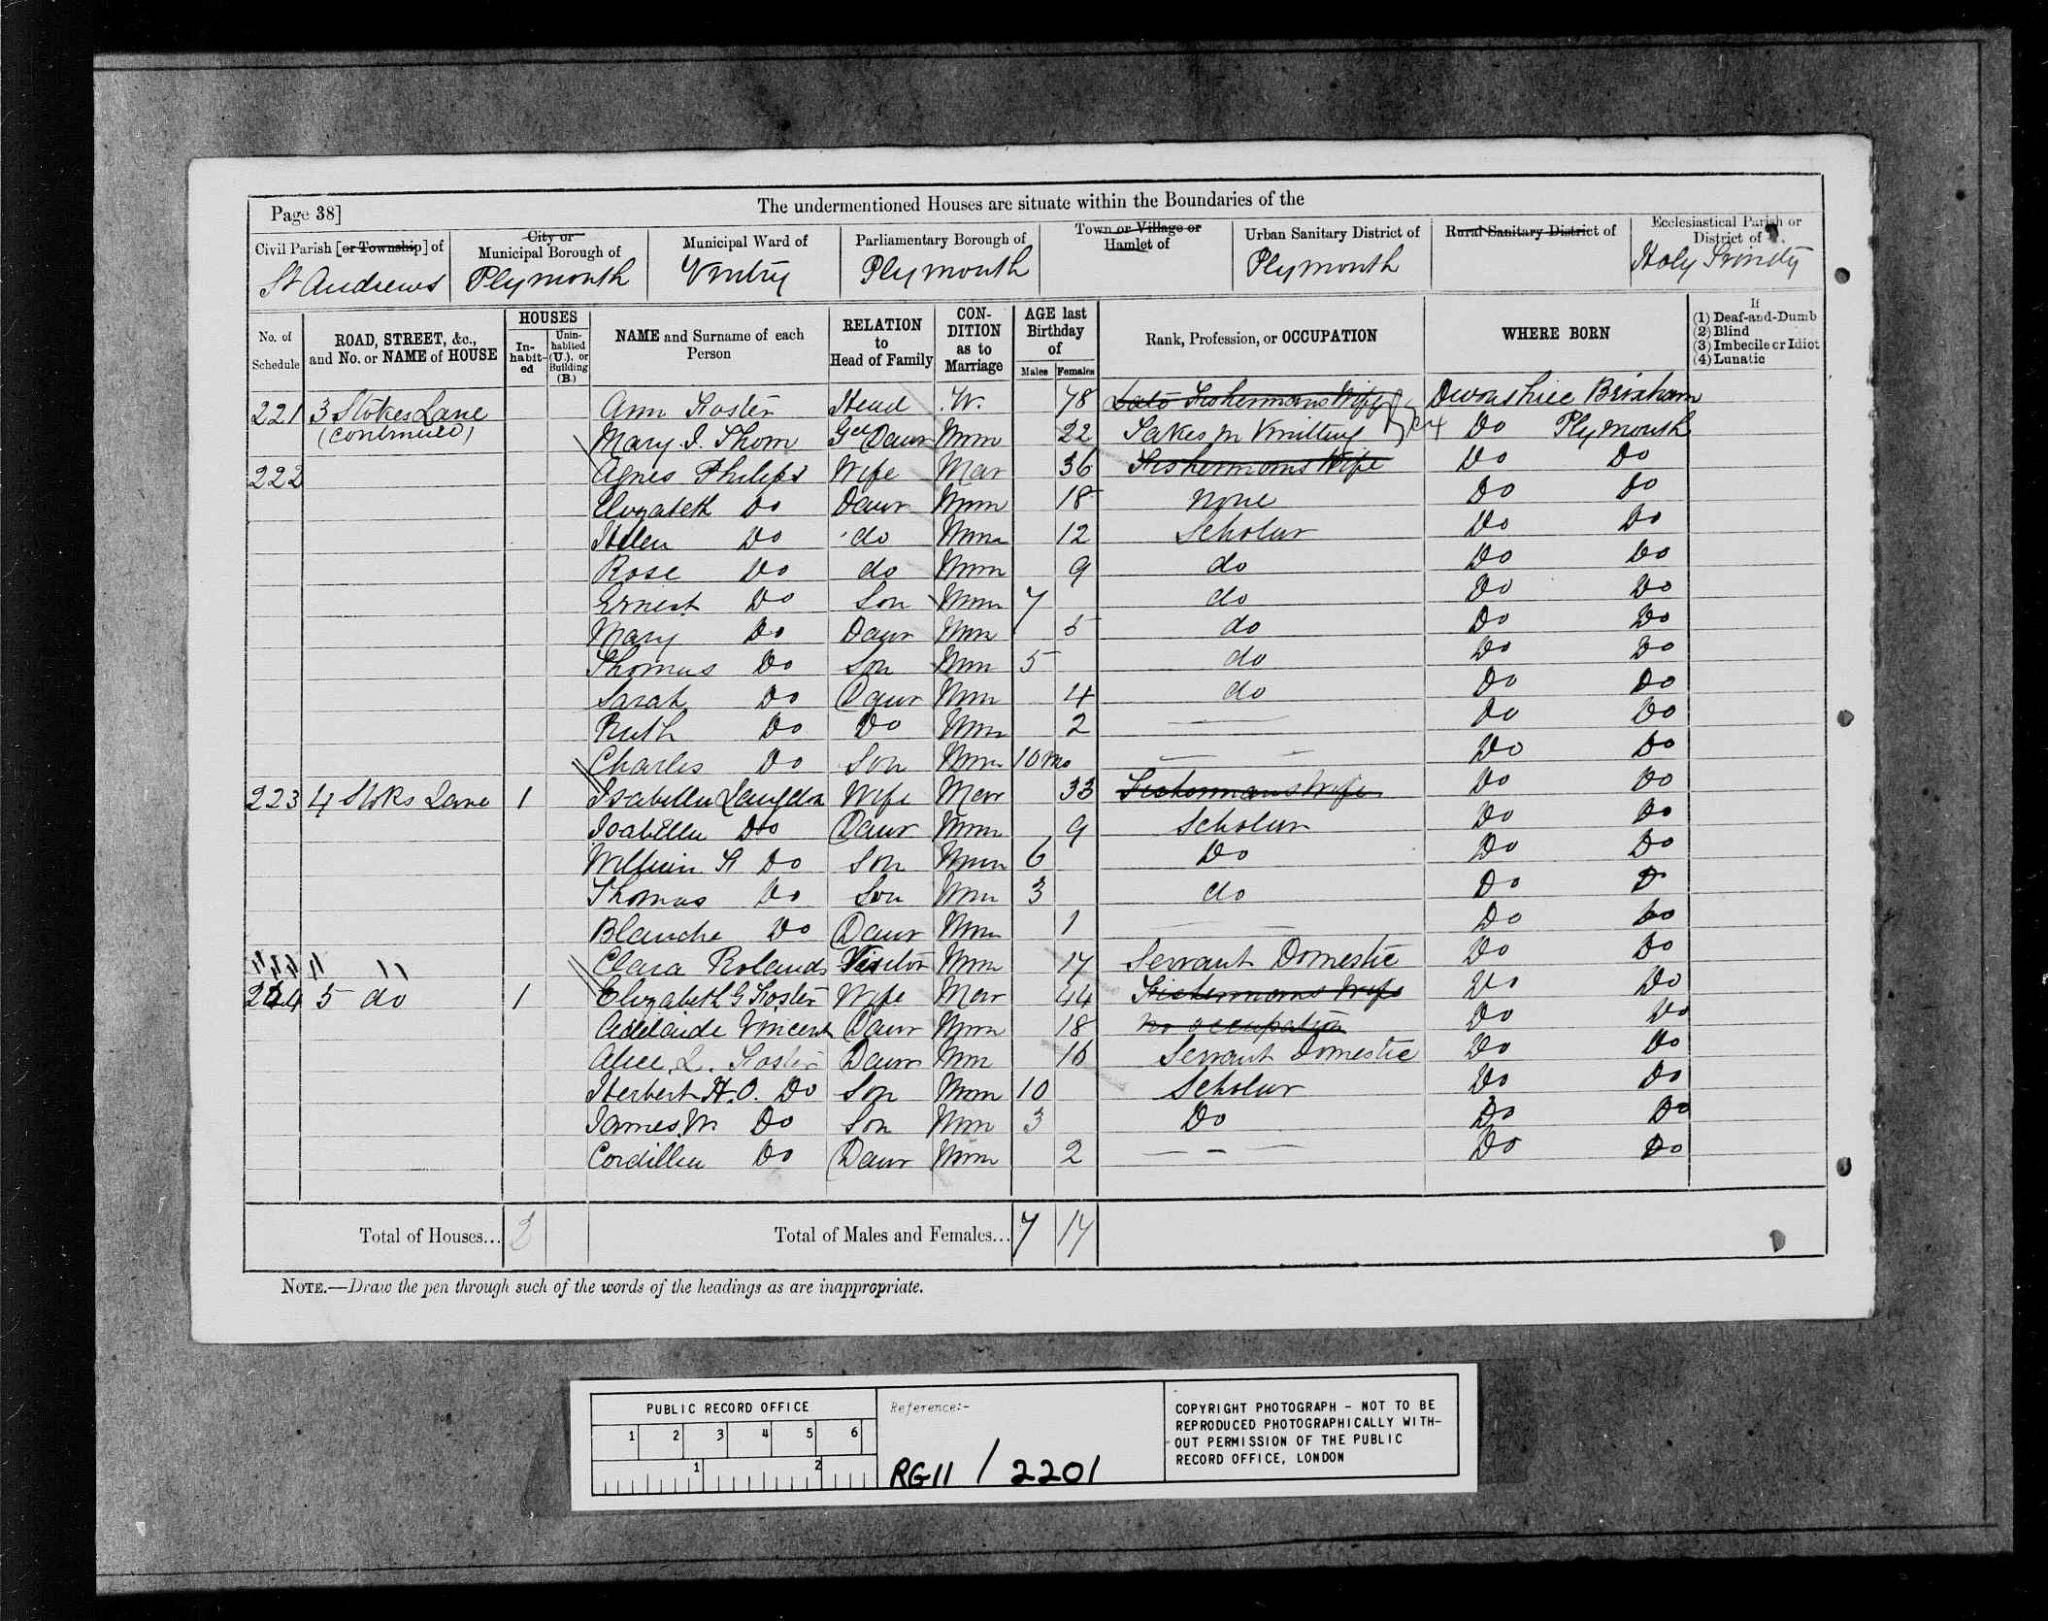 Page 38]
The undermentioned Houses are situate within the Boundaries of the
Civil Parish [or Township] of
St Andrews
City or Municipal Borough of
Plymouth
Municipal Ward of
Vintry
Parliamentary Borough of
Plymouth
Town or Village or Hamlet of
Urban Sanitary District of
Plymouth
Rural Sanitary District of
Ecclesiastical Parish or District of
Holy Trinity
No. of Schedule
ROAD, STREET, &c., and No. or NAME of HOUSE
HOUSES
In-habit-ed
Unin-habited (U.), or Building (B.)
NAME and Surname of each Person
RELATION to Head of Family
CON-DITION as to Marriage
AGE last Birthday of
Males
Females
Rank, Profession, or OCCUPATION
WHERE BORN
If
(1) Deaf-and-Dumb
(2) Blind
(3) Imbecile or Idiot
(4) Lunatic
221 3 Stokes Lane Ann Foster Head W. 78 Late Fishermans Wife Devonshire Brixham
(continued) Mary J. Thom Gd Daur Unm 22 Takes in Knitting Do Plymouth
222 Agnes Philips Wife Mar 36 Fishermans Wife Do Do
Elizabeth Do Daur Unm 18 none Do Do
Hellen Do do Unm 12 Scholar Do Do
Rose Do do Unm 9 do Do Do
Ernest Do Son Unm 7 do Do Do
Mary Do Daur Unm 5 do Do Do
Thomas Do Son Unm 5 do Do Do
Sarah Do Daur Unm 4 do Do Do
Ruth Do Do Unm 2 Do Do
Charles Do Son Unm 10 mo Do Do
223 4 Stoks Lane 1 Isabella Langdon Wife Mar 33 Fishermans Wife Do Do
Isabella Do Daur Unm 9 Scholar Do Do
William H Do Son Unm 6 Do Do Do
Thomas Do Son Unm 3 do Do D
Blanche Do Daur Unm 1 Do Do
Clara Rolands Visitor Unm 17 Servant Domestic Do Do
224 5 do 1 Elizabeth G Foster Wife Mar 44 Fishermans Wife Do Do
Adelaide Vincent Daur Unm 18 no occupation Do Do
Alice L. Foster Daur Unm 16 Servant Domestic Do Do
Herbert H.O. Do Son Unm 10 Scholar Do Do
James W. Do Son Unm 3 Do Do Do
Cordillia Do Daur Unm 2 Do Do
Total of Houses... 2 Total of Males and Females... 7 17
NOTE.—Draw the pen through such of the words of the headings as are inappropriate.
PUBLIC RECORD OFFICE
1 2 3 4 5 6
1 2
Reference:-
RG11 / 2201
COPYRIGHT PHOTOGRAPH - NOT TO BE
REPRODUCED PHOTOGRAPHICALLY WITH-
OUT PERMISSION OF THE PUBLIC
RECORD OFFICE, LONDON